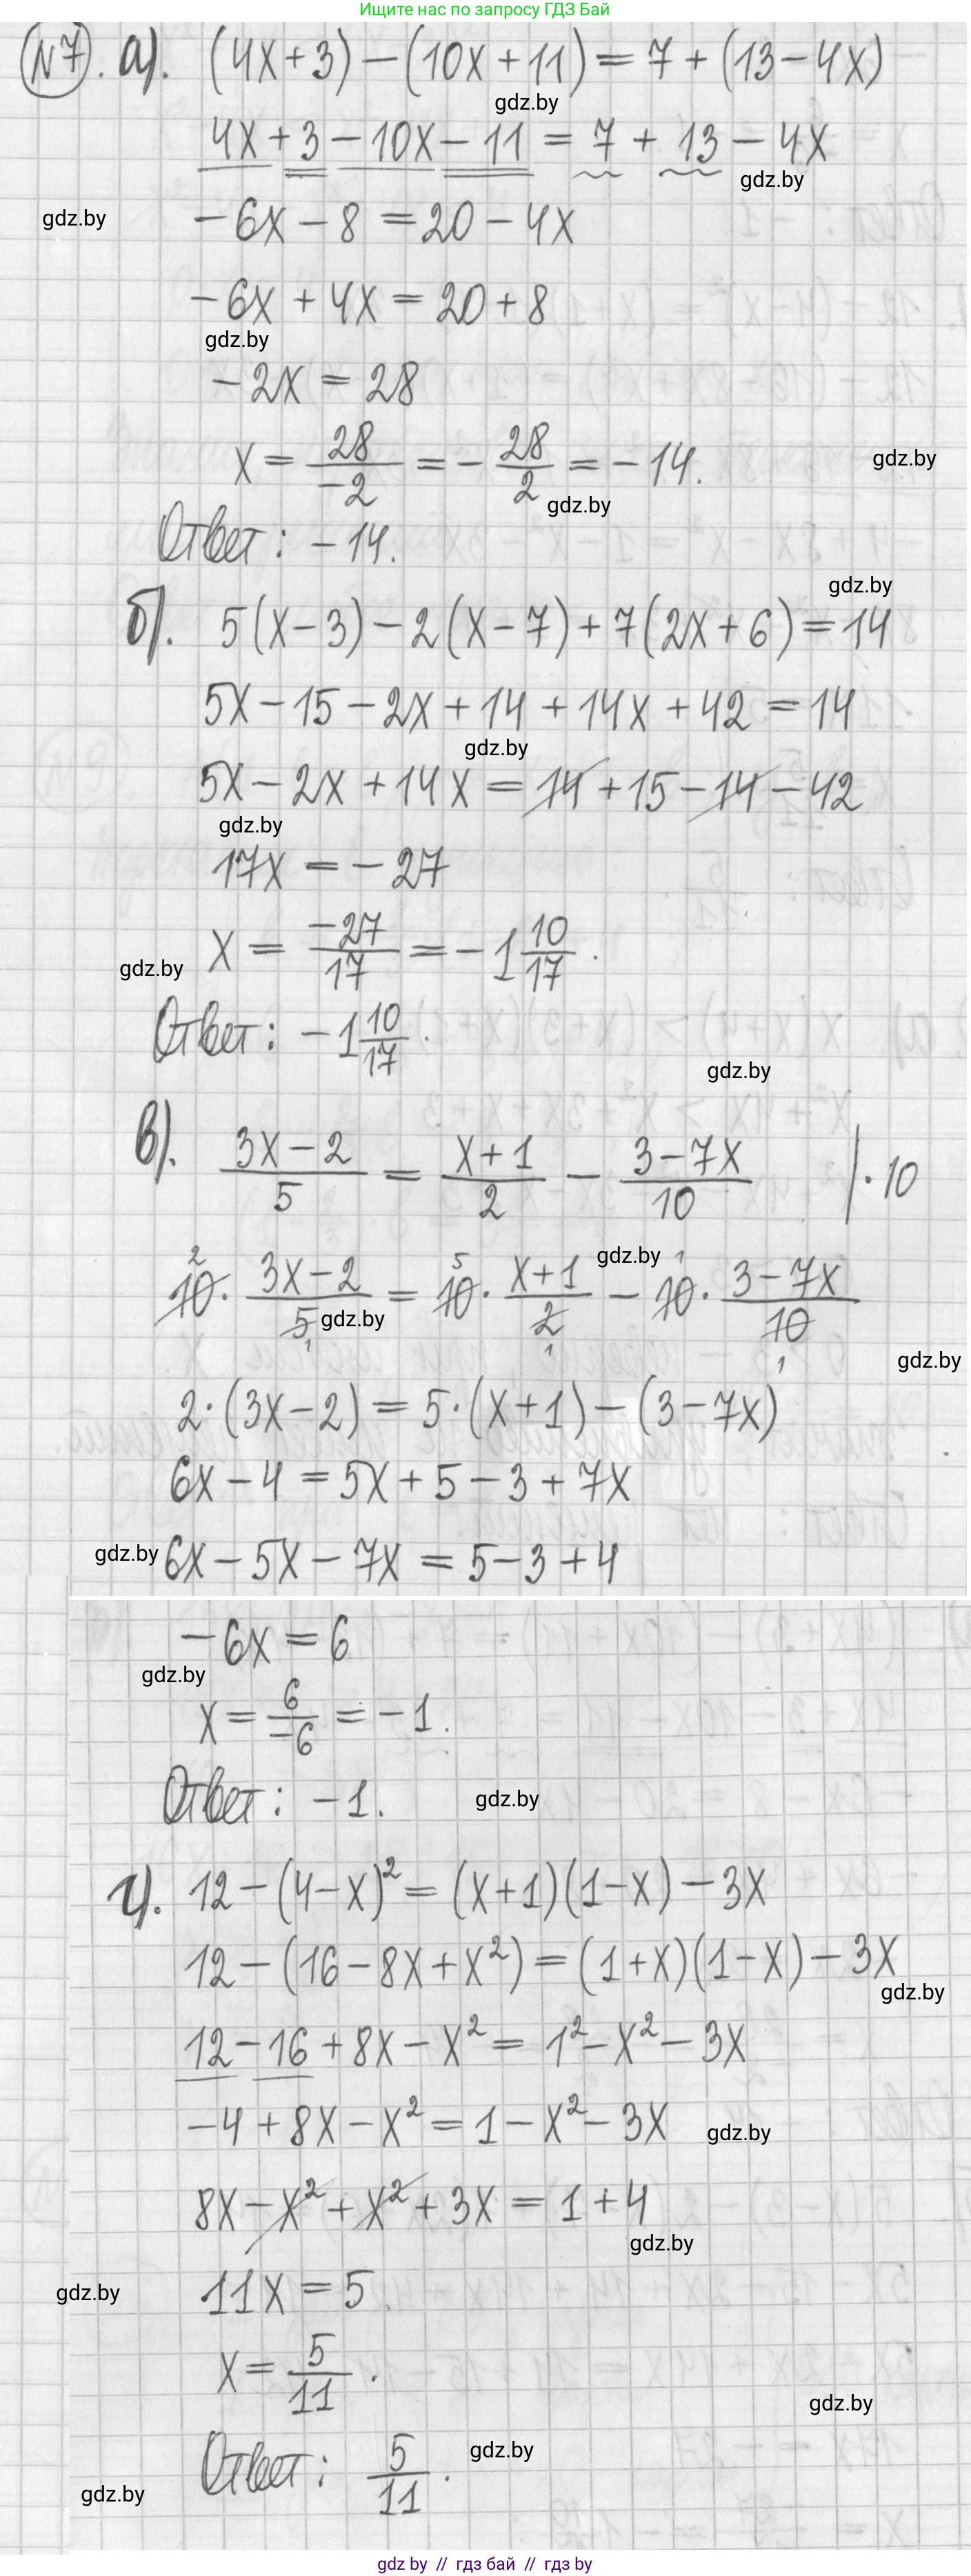 Ищите нас по запросу ГДЗ Бай
№7. а). (4x+3)-(10x+11)=7+(13-4x)
gdz.by
4x+3-10x-11=7+13-4x
gdz.by
gdz.by
-6x-8=20-4x
-6x+4x=20+8
gdz.by
-2x=28
x=28/-2=-28/2=-14.
gdz.by
gdz.by
Ответ: -14.
gdz.by
б). 5(x-3)-2(x-7)+7(2x+6)=14
5x-15-2x+14+14x+42=14
gdz.by
5x-2x+14x=14+15-14-42
gdz.by
17x=-27
x=-27/17=-1 10/17.
gdz.by
Ответ: -1 10/17.
gdz.by
в). (3x-2)/5=(x+1)/2-(3-7x)/10 |·10
gdz.by
10·(3x-2)/5=10·(x+1)/2-10·(3-7x)/10
gdz.by
gdz.by
2·(3x-2)=5·(x+1)-(3-7x)
6x-4=5x+5-3+7x
gdz.by 6x-5x-7x=5-3+4
-6x=6
gdz.by
x=6/-6=-1.
Ответ: -1.
gdz.by
г). 12-(4-x)²=(x+1)(1-x)-3x
12-(16-8x+x²)=(1+x)(1-x)-3x
gdz.by
12-16+8x-x²=1²-x²-3x
-4+8x-x²=1-x²-3x
gdz.by
8x-x²+x²+3x=1+4
gdz.by
gdz.by
11x=5
x=5/11.
gdz.by
Ответ: 5/11.
gdz.by
gdz.by
gdz by // гдз бай // гдз by